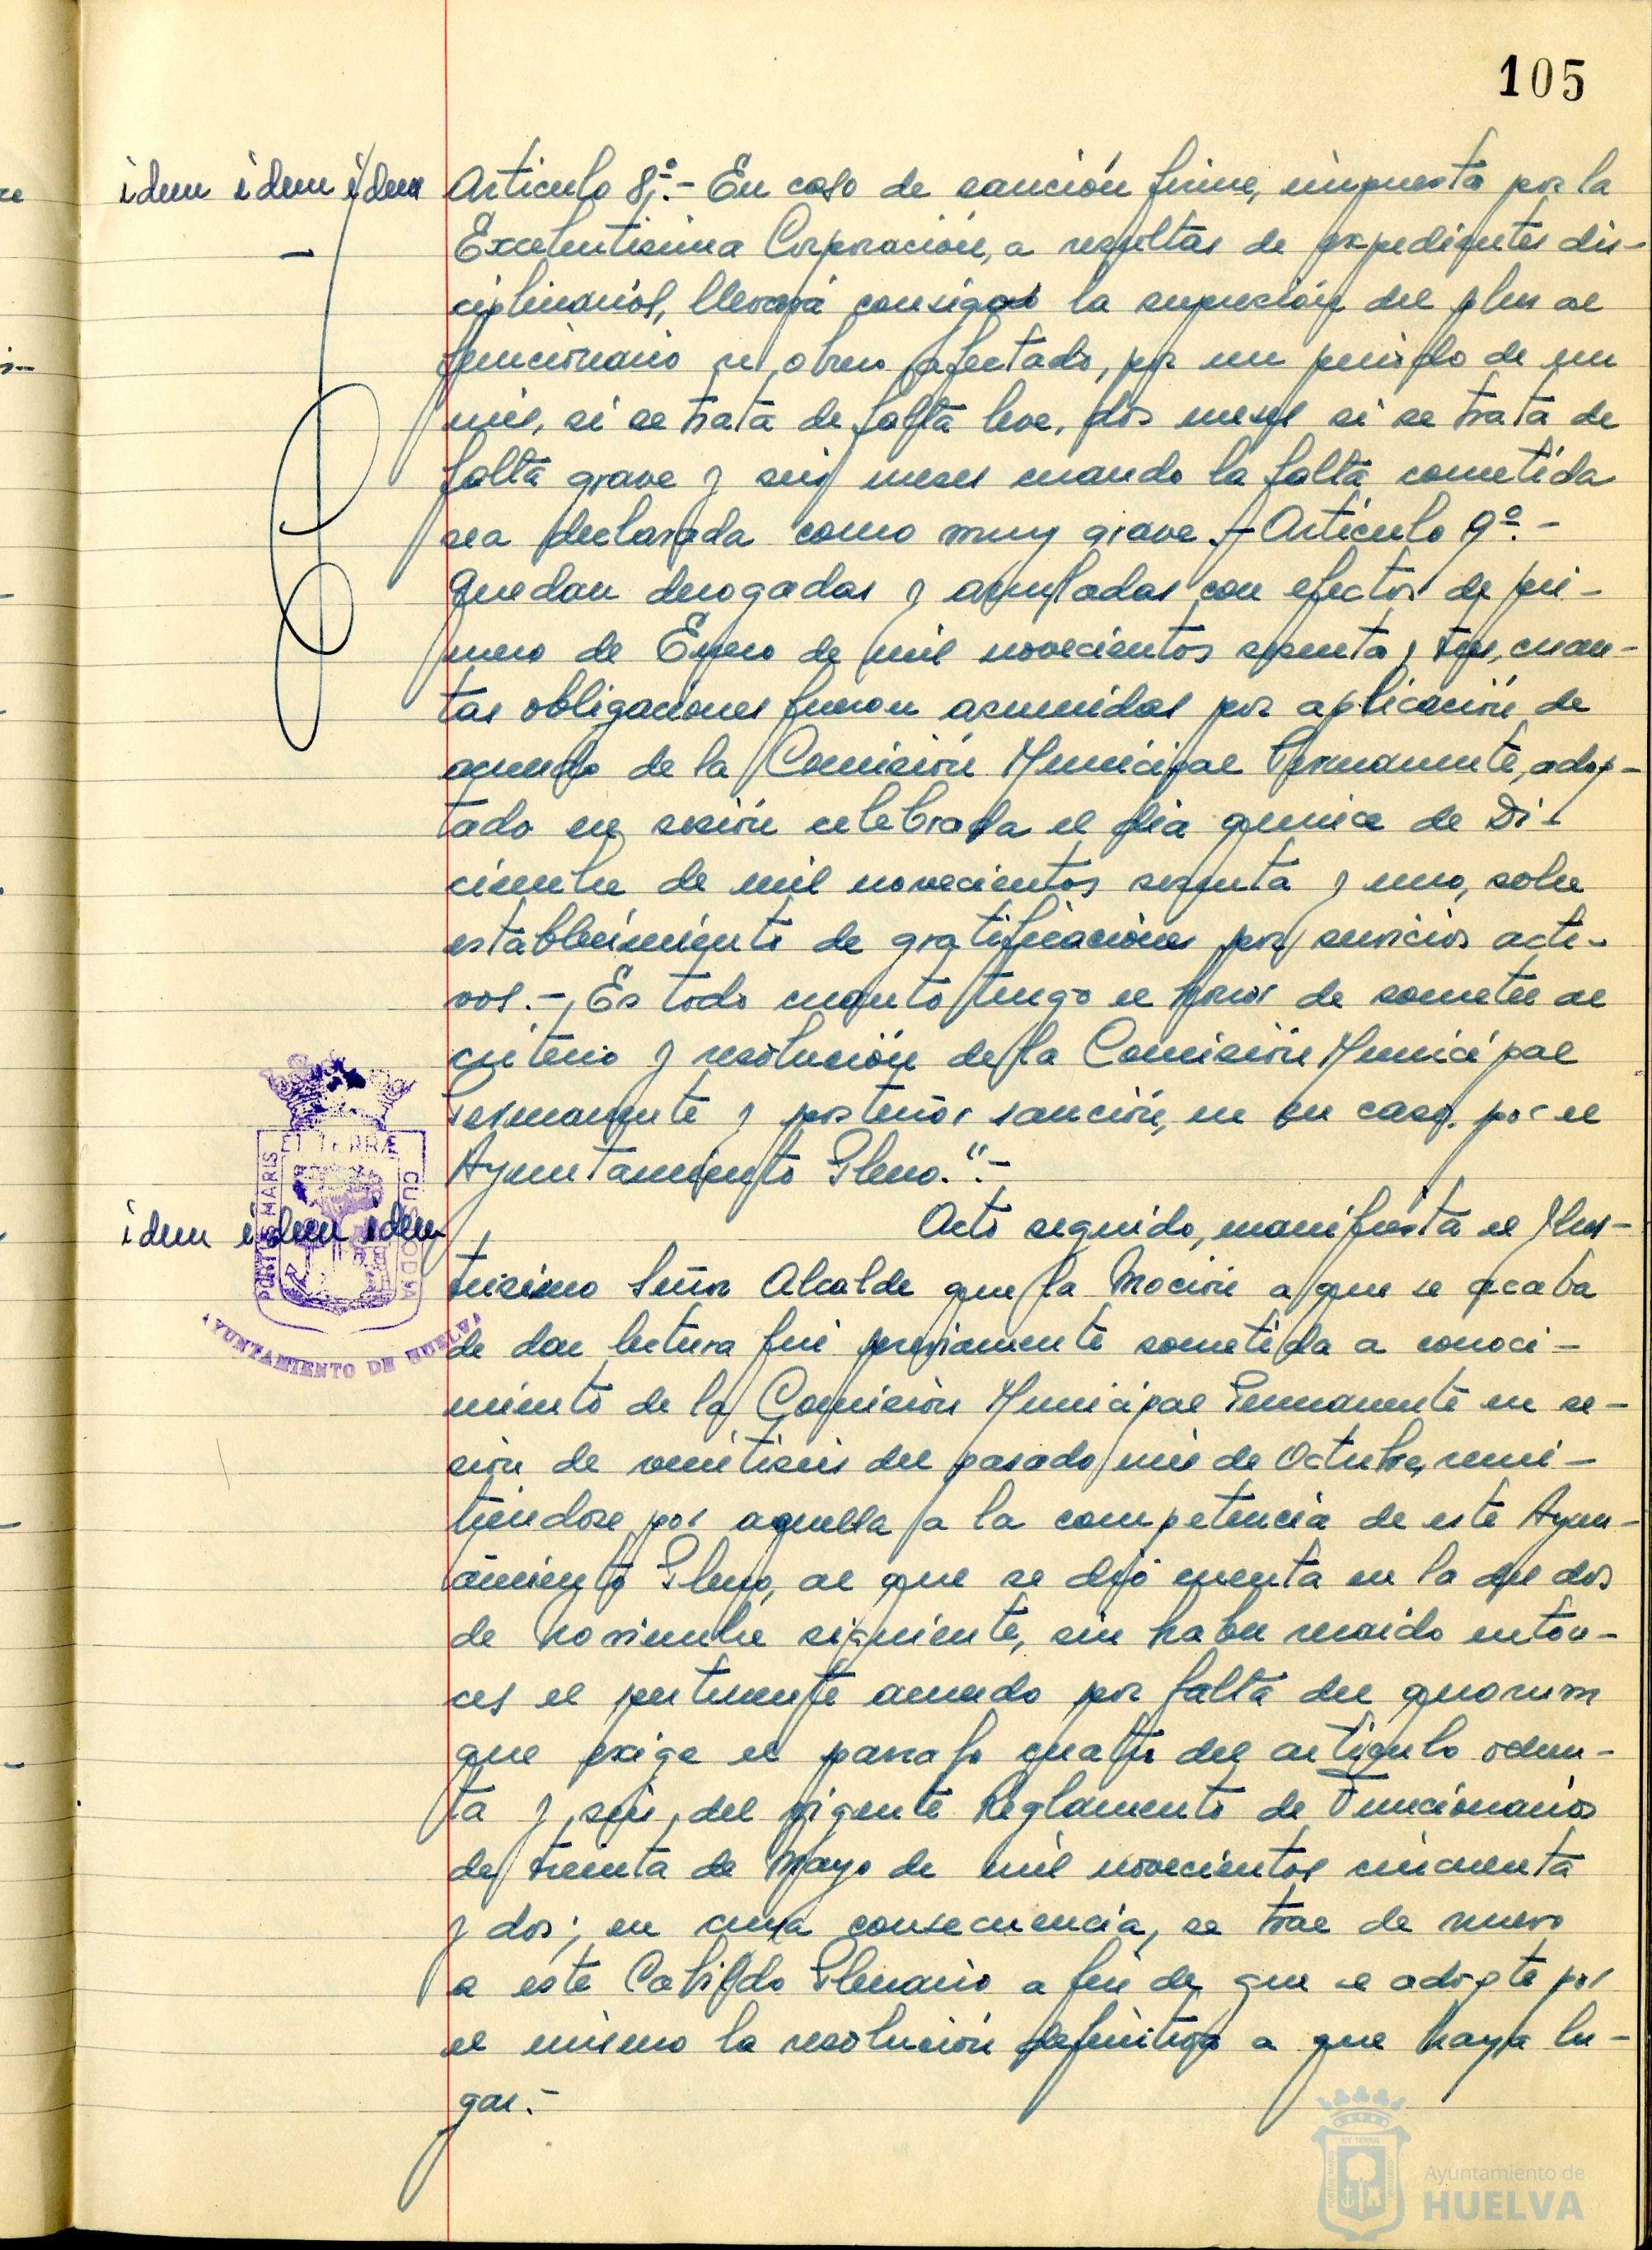 105
idem idem idem
Articulo 8º.- En caso de sanción firme, impuesta por la
Excelentisima Corporación, a resultas de expedientes dis-
ciplinarios, llevará consigo la supresión del plus al
funcionario u obrero afectado, por un periodo de un
mes, si se trata de falta leve, dos meses si se trata de
falta grave y seis meses cuando la falta cometida
sea declarada como muy grave.- Articulo 9º.-
Quedan derogadas y anuladas con efectos de pri-
mero de Enero de mil novecientos sesenta y tres, cuan-
tas obligaciones fueron asumidas por aplicación de
acuerdo de la Comisión Municipal Permanente, adop-
tado en sesión celebrada el dia quince de Di-
ciembre de mil novecientos sesenta y uno, sobre
establecimiento de gratificaciones por servicios acti-
vos.- Es todo cuanto tengo el honor de someter al
criterio y resolución de la Comisión Municipal
Permanente y posterior sanción, en su caso, por el
Ayuntamiento Pleno.".-
PORTUS MARIS ET TERRÆ CUSTODIA
AYUNTAMIENTO DE HUELVA
idem idem idem
Acto seguido, manifiesta el Ilus-
trisimo Señor Alcalde que la Moción a que se acaba
de dar lectura fué previamente sometida a conoci-
miento de la Comisión Municipal Permanente en se-
sión de veintiseis del pasado mes de Octubre, remi-
tiendose por aquella a la competencia de este Ayun-
tamiento Pleno, al que se dió cuenta en la de dos
de Noviembre siguiente, sin haber recaido enton-
ces el pertinente acuerdo por falta del quorum
que exige el parrafo cuarto del articulo ochen-
ta y seis del vigente Reglamento de Funcionarios
de treinta de Mayo de mil novecientos cincuenta
y dos; en cuya consecuencia, se trae de nuevo
a este Cabildo Plenario a fin de que se adopte por
el mismo la resolución definitiva a que haya lu-
gar.-
Ayuntamiento de
HUELVA